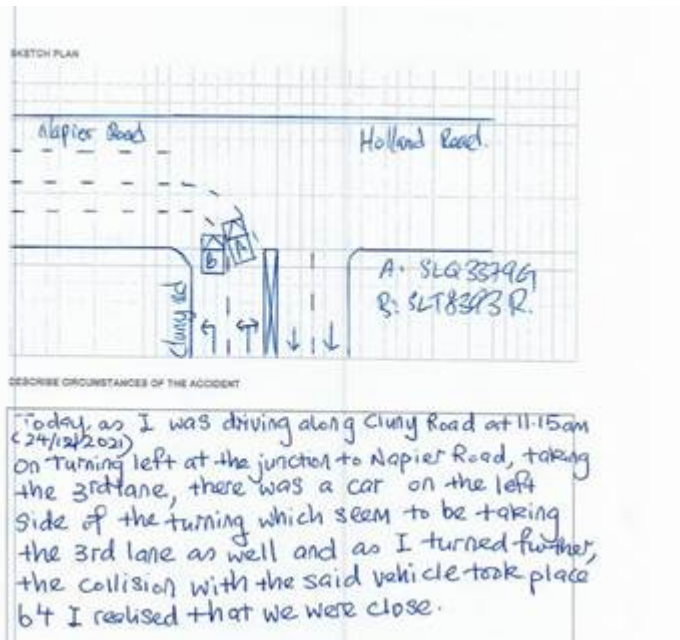 SKETCH PLAN
Napier Road
Holland Road.
Cluny Rd
B
A
A. SLQ3379G
B: SLT8393R.
DESCRIBE CIRCUMSTANCES OF THE ACCIDENT
Today, as I was driving along Cluny Road at 11.15am
(24/12/2021)
on turning left at the junction to Napier Road, taking
the 3rd lane, there was a car on the left
side of the turning which seem to be taking
the 3rd lane as well and as I turned further,
the collision with the said vehicle took place
b4 I realised that we were close.